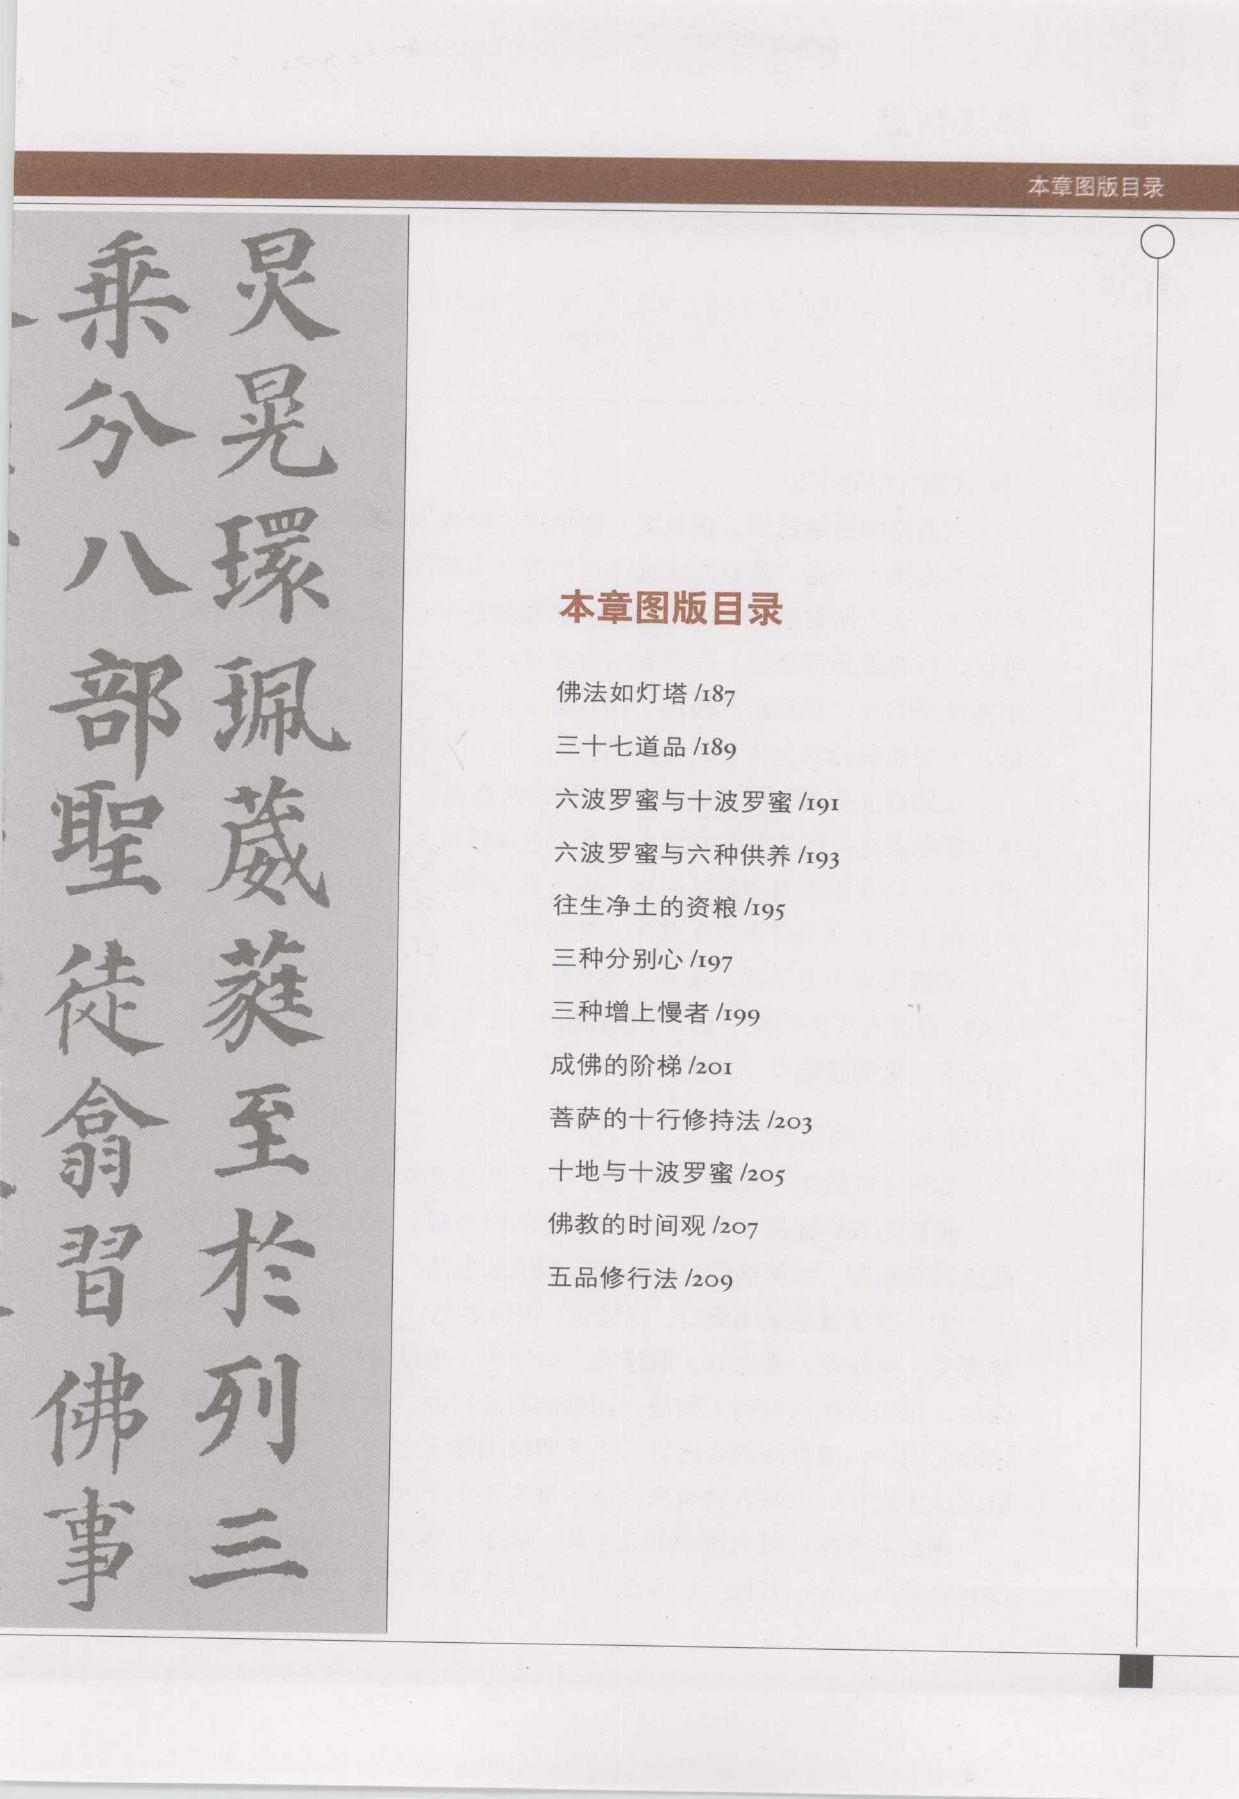 本章图版目录
炅晃環珮葳蕤至於列三
乘分八部聖徒翕習佛事
本章图版目录
佛法如灯塔 /187
三十七道品 /189
六波罗蜜与十波罗蜜 /191
六波罗蜜与六种供养 /193
往生净土的资粮 /195
三种分别心 /197
三种增上慢者 /199
成佛的阶梯 /201
菩萨的十行修持法 /203
十地与十波罗蜜 /205
佛教的时间观 /207
五品修行法 /209